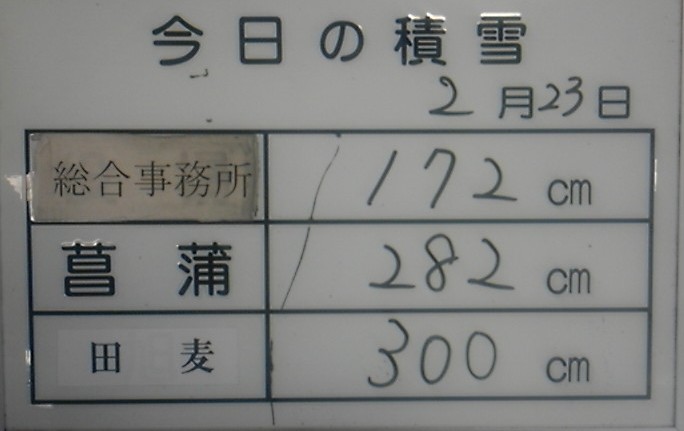 今日の積雪
2月23日
総合事務所 172 cm
菖蒲 282 cm
田麦 300 cm